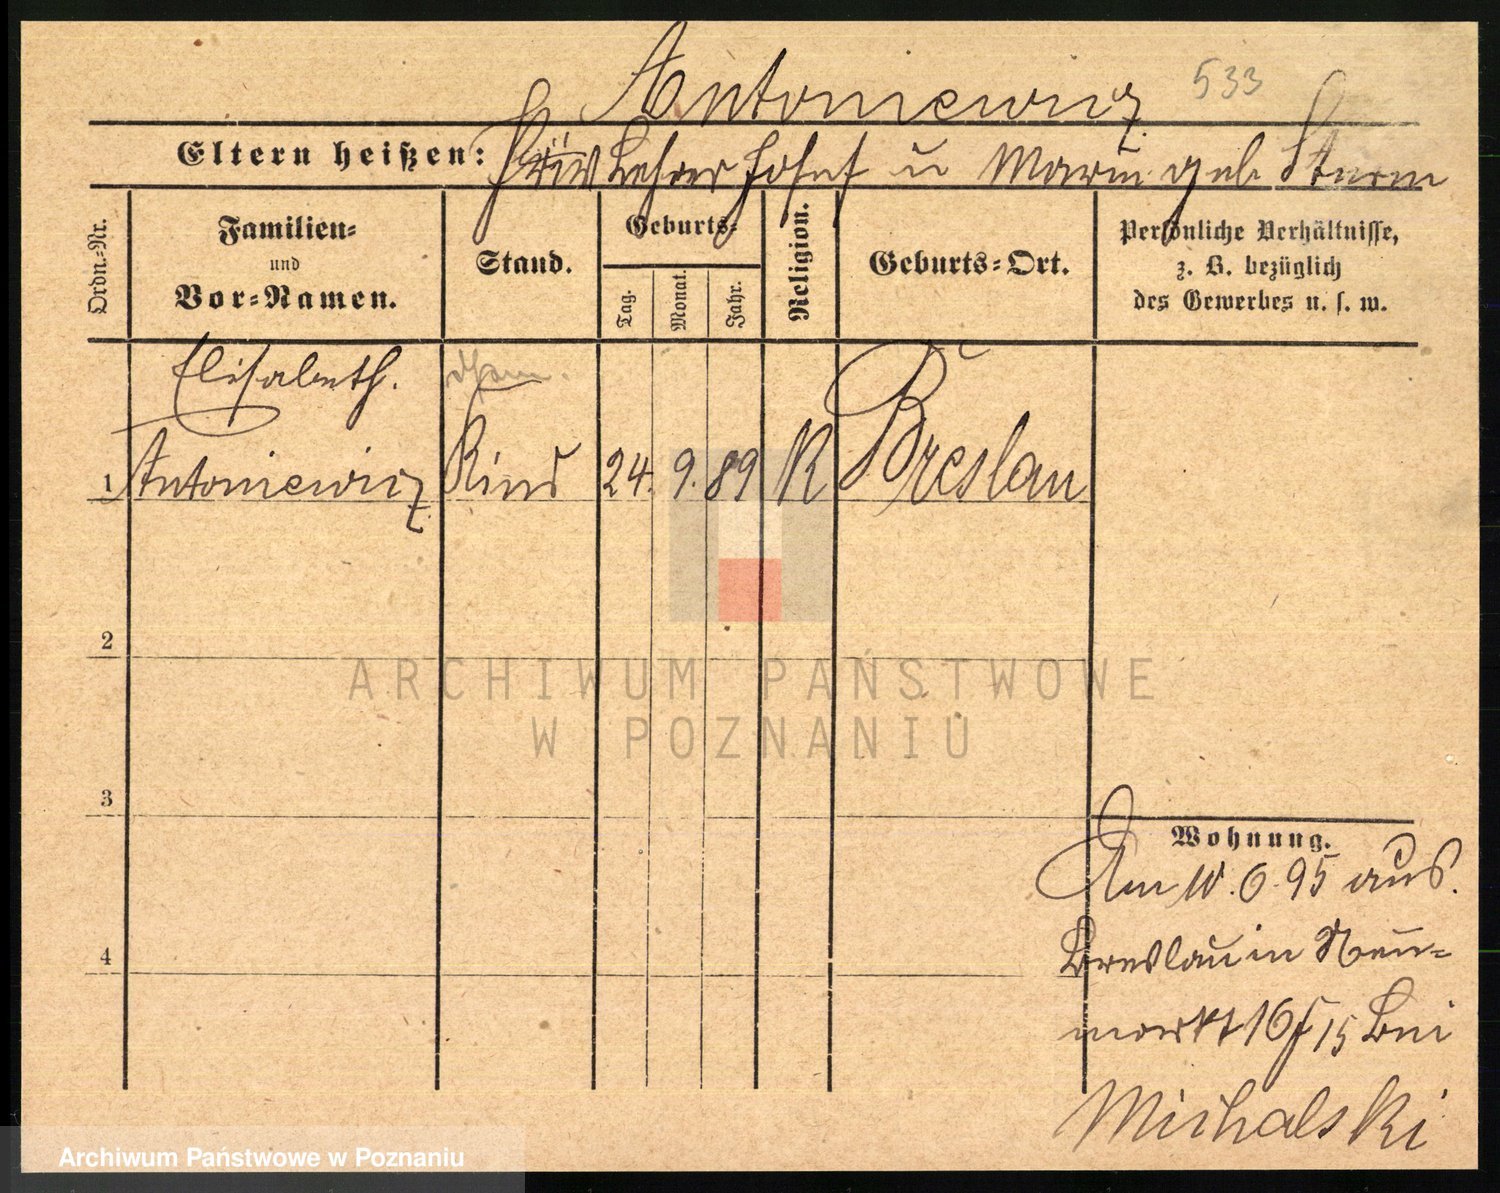 Antoniewicz 533
Eltern heißen: Lehrer Josef u Marie geb Sturm
Ordn.-Nr.
Familien-
und
Vor-Namen.
Stand.
Geburts-
Tag.
Monat.
Jahr.
Religion.
Geburts-Ort.
Persönliche Verhältnisse,
z. B. bezüglich
des Gewerbes u. s. w.
Elisabeth.
1 Antoniewicz Kind 24. 9. 89 K Breslau
2
3
4
ARCHIWUM PAŃSTWOWE
W POZNANIU
Wohnung.
Am 10. 6. 95 aus.
Breslau in Neu-
markt 16 15 bei
Michalski
Archiwum Państwowe w Poznaniu